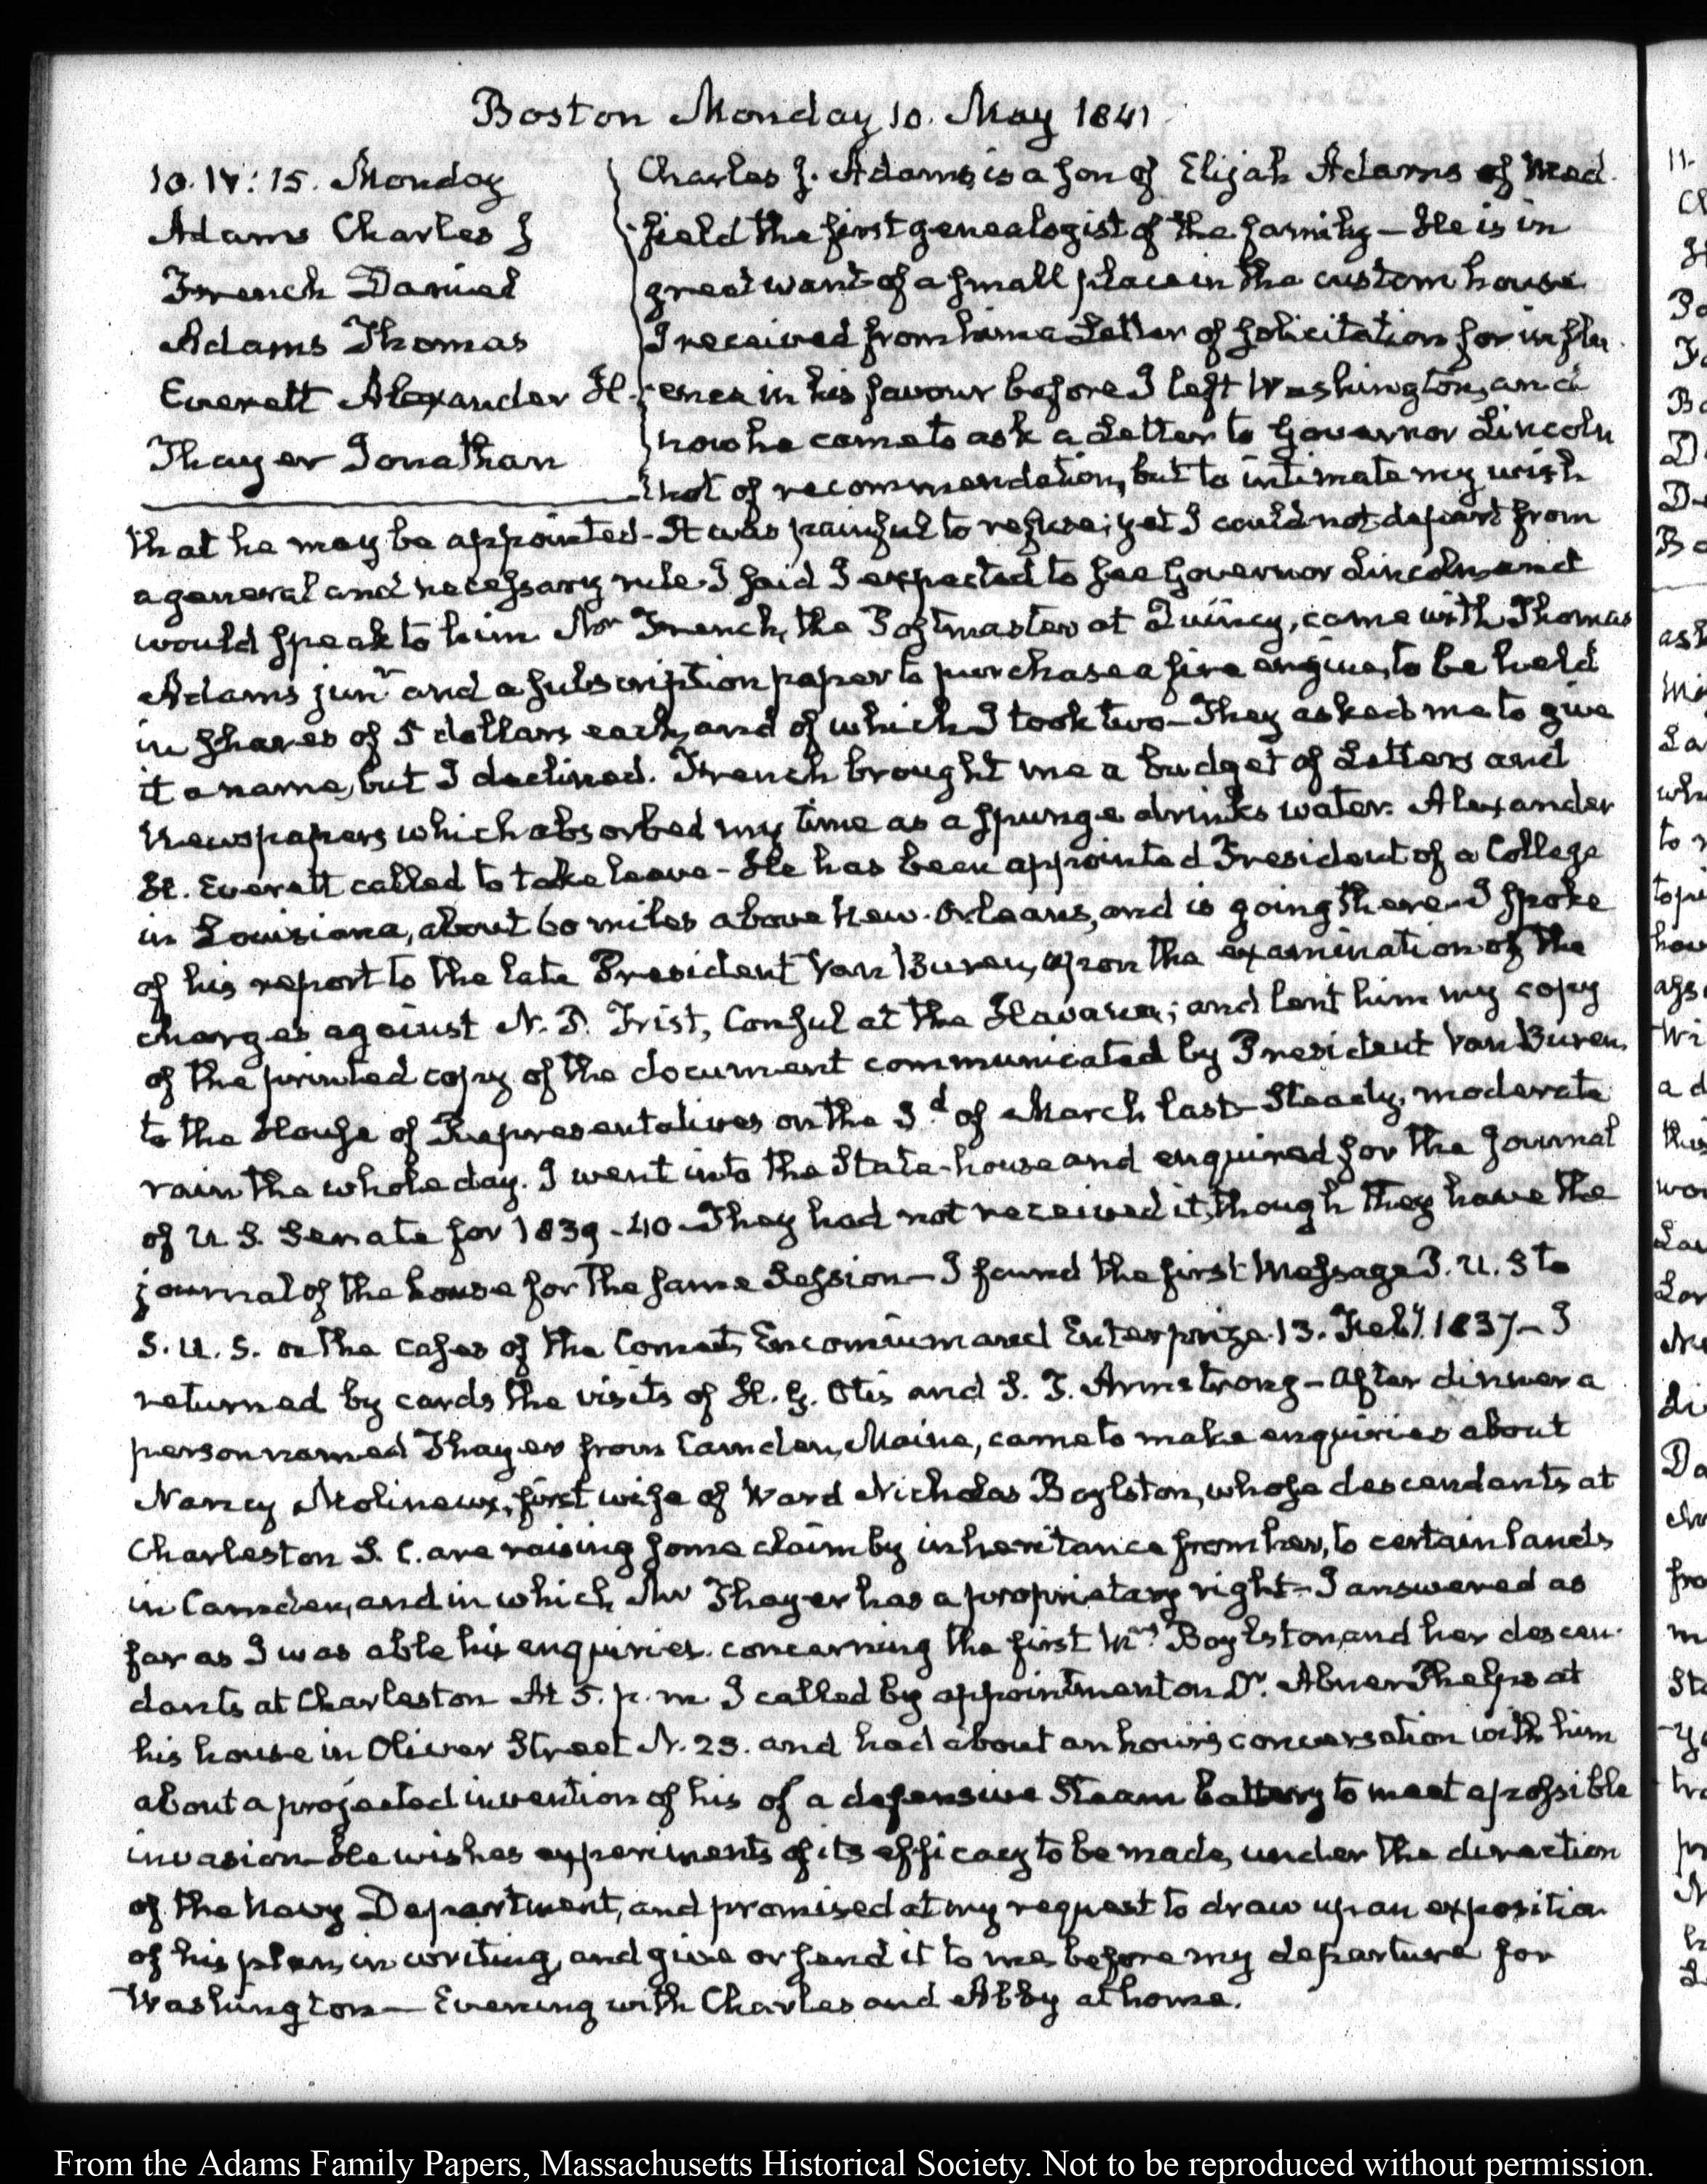 Boston Monday 10. May 1841
10. IV: 15. Monday
Adams Charles J
French Daniel
Adams Thomas
Everett Alexander H.
Thayer Jonathan
Charles J. Adams, is a son of Elijah Adams of Med-
field the first genealogist of the family — He is in
great want of a small place in the custom house
I received from him a Letter of solicitation for influ-
ence in his favour before I left Washington, and
now he came to ask a Letter to Governor Lincoln
not of recommendation, but to intimate my wish
that he may be appointed - It was painful to refuse; yet I could not depart from
a general and necessary rule. I said I expected to see Governor Lincoln and
would speak to him. Mr French, the Postmaster at Quincy, came with Thomas
Adams junr and a subscription paper to purchase a fire engine, to be held
in shares of 5 dollars each, and of which I took two — They asked me to give
it a name, but I declined. French brought me a budget of Letters and
Newspapers which absorbed my time as a spunge drinks water. Alexander
H. Everett called to take leave - He has been appointed President of a College
in Louisiana, about 60 miles above New-Orleans, and is going there - I spoke
of his report to the late President Van Buren, upon the examination of the
charges against N. P. Trist, Consul at the Havana; and lent him my copy
of the printed copy of the document communicated by President Van Buren
to the House of Representatives on the 3d of March last - Steady, moderate
rain the whole day. I went into the State-house and enquired for the Journal
of U. S. Senate for 1839-40 - They had not received it, though they have the
journal of the house for the same Session — I found the first Message P. U. S to
S. U. S. on the cases of the Comet, Encomium and Enterprize. 13. Feby. 1837 — I
returned by cards the visits of H. G. Otis and S. T. Armstrong — After dinner a
person named Thayer from Camden, Maine, came to make enquiries about
Nancy Molineux, first wife of Ward Nicholas Boylston, whose descendants at
Charleston S. C. are raising some claim by inheritance from her, to certain lands
in Camden, and in which Mr Thayer has a proprietary right - I answered as
far as I was able his enquiries. concerning the first Mrs Boylston, and her descen-
dants at Charleston - At 5. p. m. I called by appointment on Dr. Abner Phelps at
his house in Oliver Street N. 23. and had about an hour's conversation with him
about a projected invention of his of a defensive Steam battery to meet a possible
invasion - He wishes experiments of its efficacy to be made, under the direction
of the Navy Department, and promised at my request to draw up an exposition
of his plan, in writing, and give or send it to me, before my departure for
Washington — Evening with Charles and Abby at home.
From the Adams Family Papers, Massachusetts Historical Society. Not to be reproduced without permission.